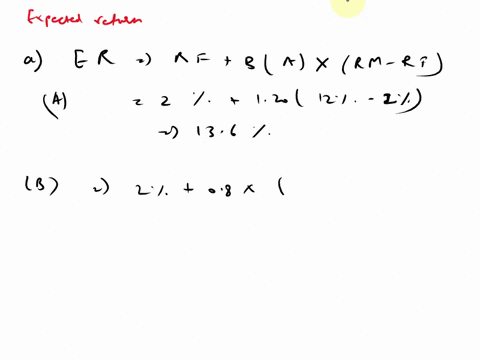 Expected return
a) ER => RF + B(A) X (RM-RF)
(A) = 2 % + 1.20 (12% - 2%)
=> 13.6 %
(B) => 2% + 0.8 x (